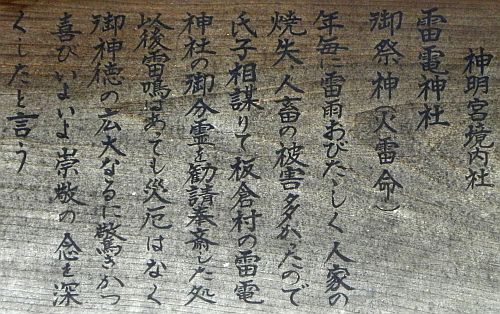 神明宮境内社
雷電神社
御祭神(火雷命)
年毎に雷雨おびたゝしく人家の
焼失、人畜の被害多かったので
氏子相謀りて板倉村の雷電
神社の御分霊を勧請奉斎した処
以後雷鳴はあっても災厄はなく
御神徳の広大なるに驚きかつ
喜びいよいよ崇敬の念を深
くしたと言う